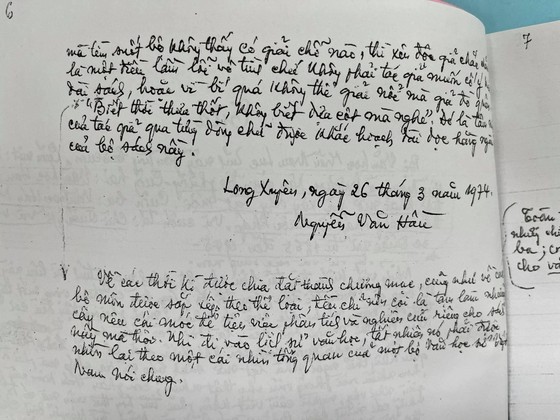 6
mà tìm suốt bộ không thấy có giải chỗ nào, thì xin độc giả chắc
là một điều lầm lỗi vô tình chứ không phải tác giả muốn
dài sách, hoặc vì bí quá không thể giải nổi mà giả đò
"Biết thời thưa thốt, không biết dựa cột mà nghe". Đó là
của tác giả qua từng dòng chữ được khắc hoạch dài dọc hằng
của bộ sách nầy.
Long Xuyên, ngày 26 tháng 3 năm 1974.
Nguyễn Văn Hầu
Về các thời kì được chia đặt thành chương mục, cũng như về
bộ môn được sắp xếp theo thể loại, chỉ nên coi là tạm làm
cây nêu cái mốc để tiện việc phân tích và nghiên cứu riêng cho
nầy mà thôi. Khi đi vào lịch sử văn học, tất nhiên nó phải được
nhìn lại theo một cái nhìn tổng quan của một bộ văn học sử Việt
Nam nói chung.
7
những
ba;
cho